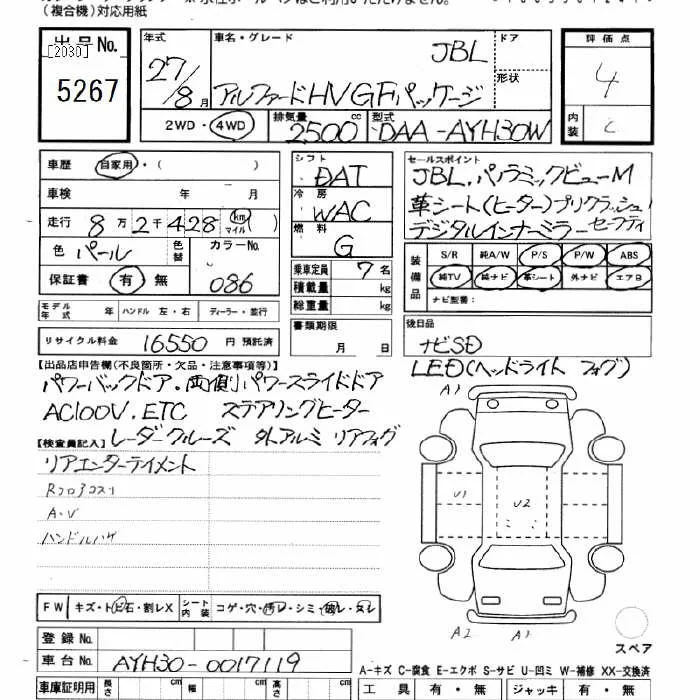 （複合機）対応用紙
出品No. 年式 車名・グレード ドア 評価点
[2030] 5267 27/8月 JBL 形状 4
アルファードHV GFパッケージ 内装 C
2WD・4WD 排気量 2500cc 型式 DAA-AYH30W
車歴 自家用・( ) シフト DAT セールスポイント
車検 年 月 冷房 WAC JBL.パノラミックビューM
走行 8万2千428 km マイル ( ) 燃料 G 革シート(ヒーター)プリクラッシュ
色 パール 色替 カラーNo. 086 デジタルインナーミラー セーフティ
保証書 有・無 乗車定員 7名 装備品 S/R 純A/W P/S P/W ABS
積載量 kg 純TV 純ナビ 革シート 外ナビ エアB
総重量 kg ナビ型番：
モデル年式 年 ハンドル 左・右 ディーラー・並行 書類期限 月 日 後日品
リサイクル料金 16550 円 預託済 ナビSD
【出品店申告欄(不良箇所・欠品・注意事項等)】 LED(ヘッドライト フォグ)
パワーバックドア.両側パワースライドドア
AC100V.ETC ステアリングヒーター
【検査員記入】レーダークルーズ 外アルミ リアフォグ
リアエンターテイメント
A1
Rフロアコスリ
A・V
U1 U2
ハンドルハゲ
FW キズ・トビ石・割レX シート内装 コゲ・穴・汚レ・シミ・破レ・スレ
登録No.
A2 A1 スペア
車台No. AYH30-0017119
A-キズ C-腐食 E-エクボ S-サビ U-凹ミ W-補修 XX-交換済
車庫証明用 長さ cm 幅 cm 高さ cm 工具 有・無 ジャッキ 有・無